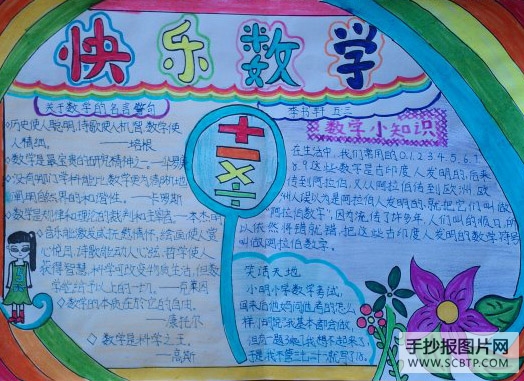 快乐数学
关于数学的名言警句
李书轩 五三
◇历史使人聪明,诗歌使人机智,数学使
人精细。 ——培根
◇数学是最宝贵的研究精神之一。—华罗庚
◇没有哪门学科能比数学更为清晰地
阐明自然界的和谐性。—卡罗斯
◇数学是规律和理论的裁判和主宰者——本杰明
◇音乐能激发或抚慰情怀,绘画使人赏
心悦目,诗歌能动人心弦,哲学使人
获得智慧,科学可改变物质生活,但数
学能给予以上的一切。——克莱因
◇数学的本质在於它的自由。
——康托尔
◇数学是科学之王。
——高斯
+ - × ÷
数学小知识
在生活中,我们常用的0.1.2.3.4.5.6.7.
8.9这些数字是古印度人发明的,后来
传到阿拉伯,又从阿拉伯传到欧洲,欧
洲人误以为是阿拉伯人发明的,就把它们叫做
“阿拉伯数字”,因为流传了许多年,人们叫的
以依然将错就错,把这些古印度人发明的数字符号
叫做阿拉伯数字。
笑话天地
小明小学数学考试,
回来后他妈问他考的怎么
样,小明说:我基本都会做,
但有一题3乘7我想不起来了,
于是我不管三七二十一就写了18。
手抄报图片网
WWW.SCBTP.COM